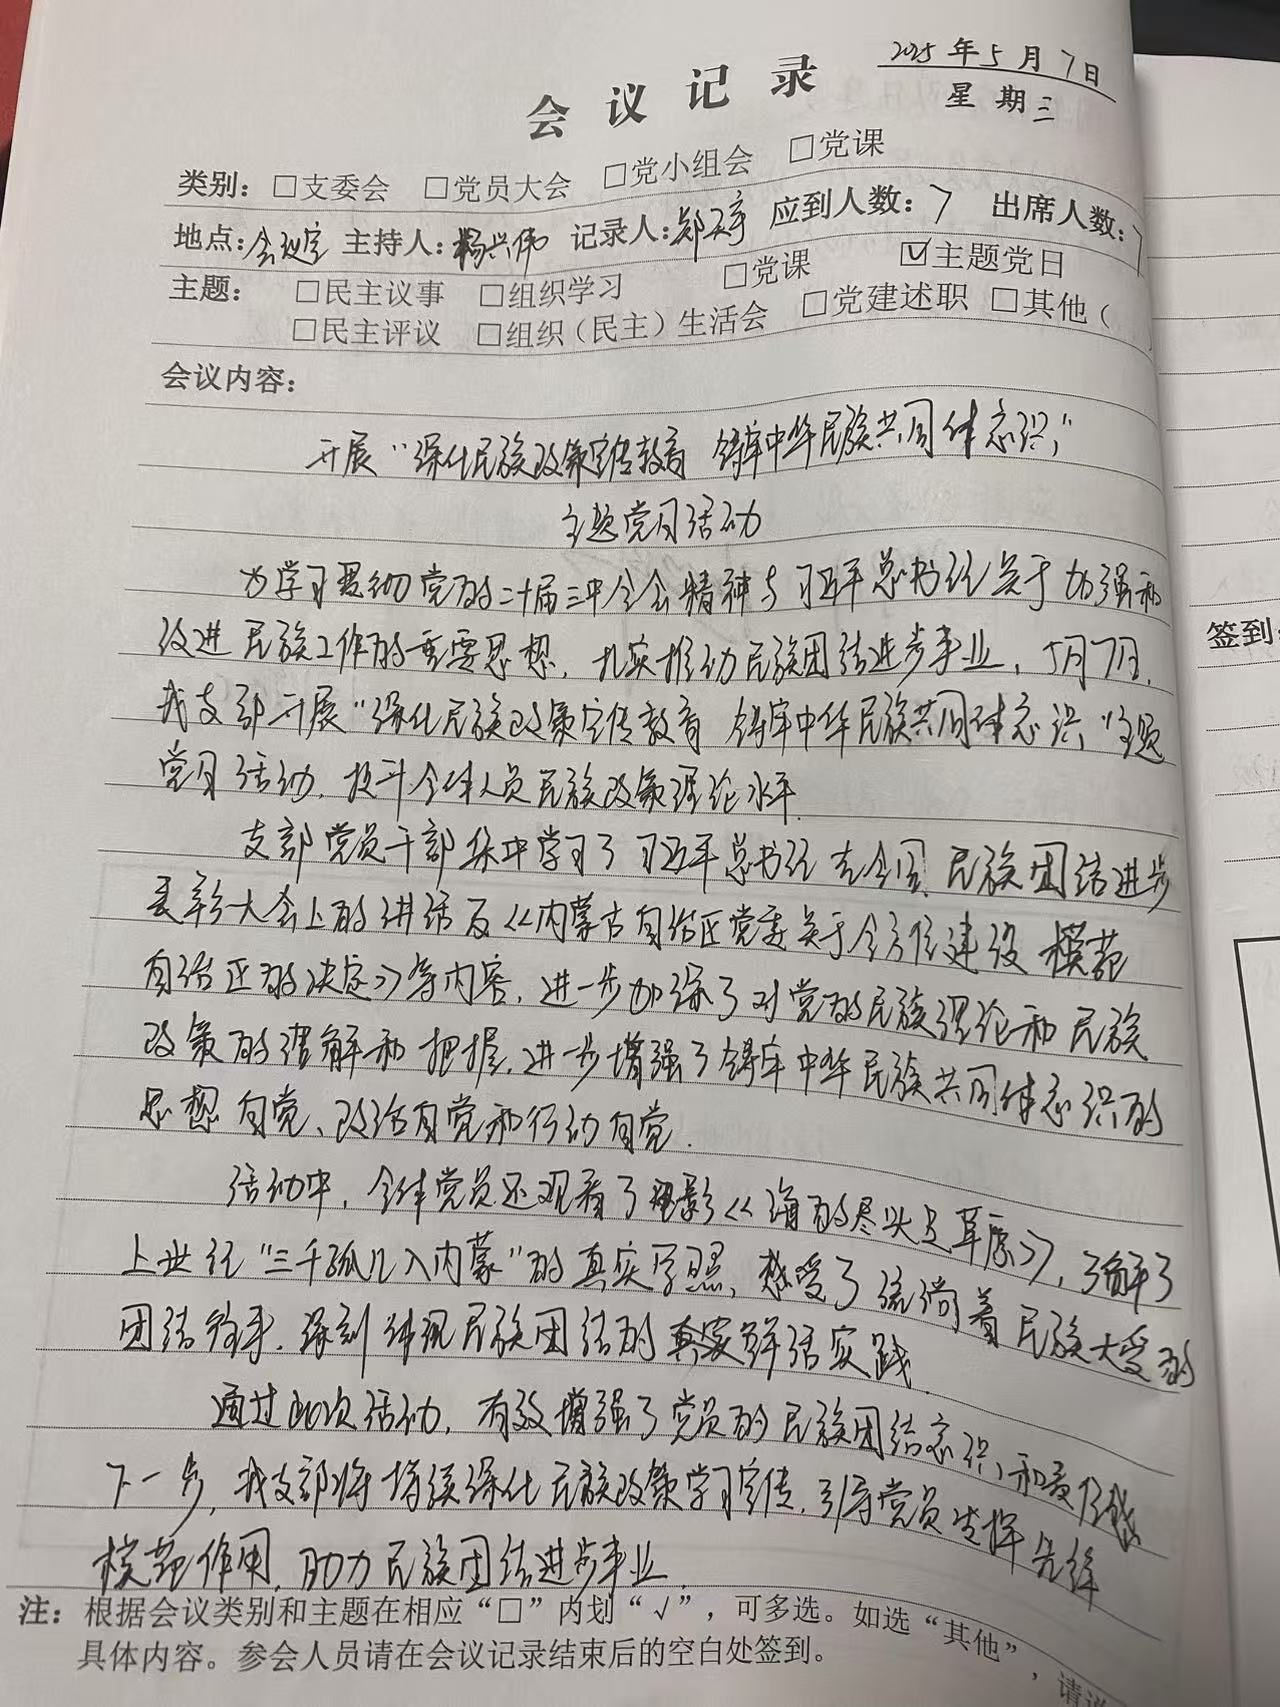 2025年5月7日
会议记录
星期三
类别：□支委会 □党员大会 □党小组会 □党课
地点：会议室 主持人：杨兴伟 记录人：郑天宇 应到人数：7 出席人数：7
主题： □民主议事 □组织学习 □党课 ☑主题党日
□民主评议 □组织（民主）生活会 □党建述职 □其他（
会议内容：
开展“深化民族政策宣传教育 铸牢中华民族共同体意识”
主题党日活动
为学习贯彻党的二十届三中全会精神与习近平总书记关于加强和
改进民族工作的重要思想，扎实推动民族团结进步事业，5月7日，
我支部开展“深化民族政策宣传教育 铸牢中华民族共同体意识”主题
党日活动，提升全体人员民族政策理论水平.
支部党员干部集中学习了习近平总书记在全国民族团结进步
表彰大会上的讲话及《内蒙古自治区党委关于全方位建设模范
自治区的决定》等内容，进一步加深了对党的民族理论和民族
政策的理解和把握，进一步增强了铸牢中华民族共同体意识的
思想自觉、政治自觉和行动自觉.
活动中，全体党员还观看了电影《海的尽头是草原》，了解了
上世纪“三千孤儿入内蒙”的真实写照，感受了流淌着民族大爱的
团结故事，深刻体现民族团结的真实鲜活实践.
通过此次活动，有效增强了党员的民族团结意识和
下一步，我支部将持续深化民族政策学习宣传，引导党员发挥先锋
模范作用，助力民族团结进步事业.
注：根据会议类别和主题在相应“□”内划“√”，可多选。如选“其他”，请
具体内容。参会人员请在会议记录结束后的空白处签到。
签到：